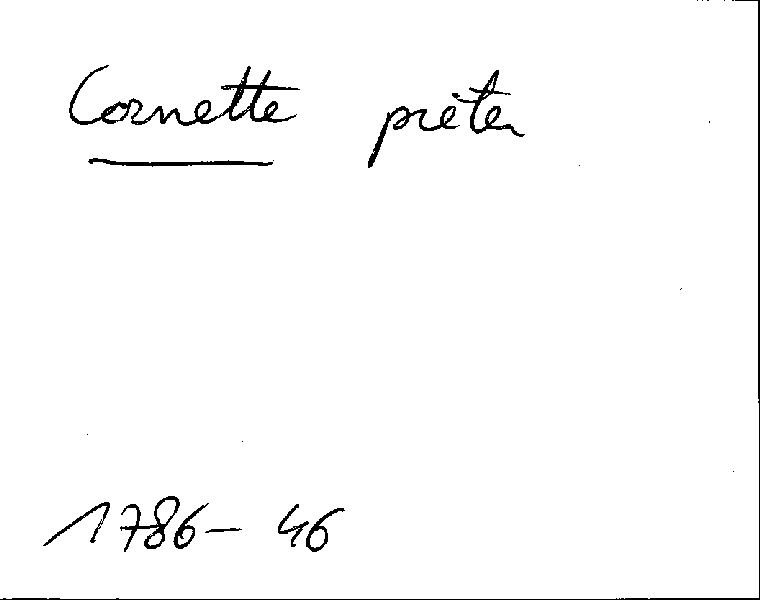 Cornette prêter
1786 - 46